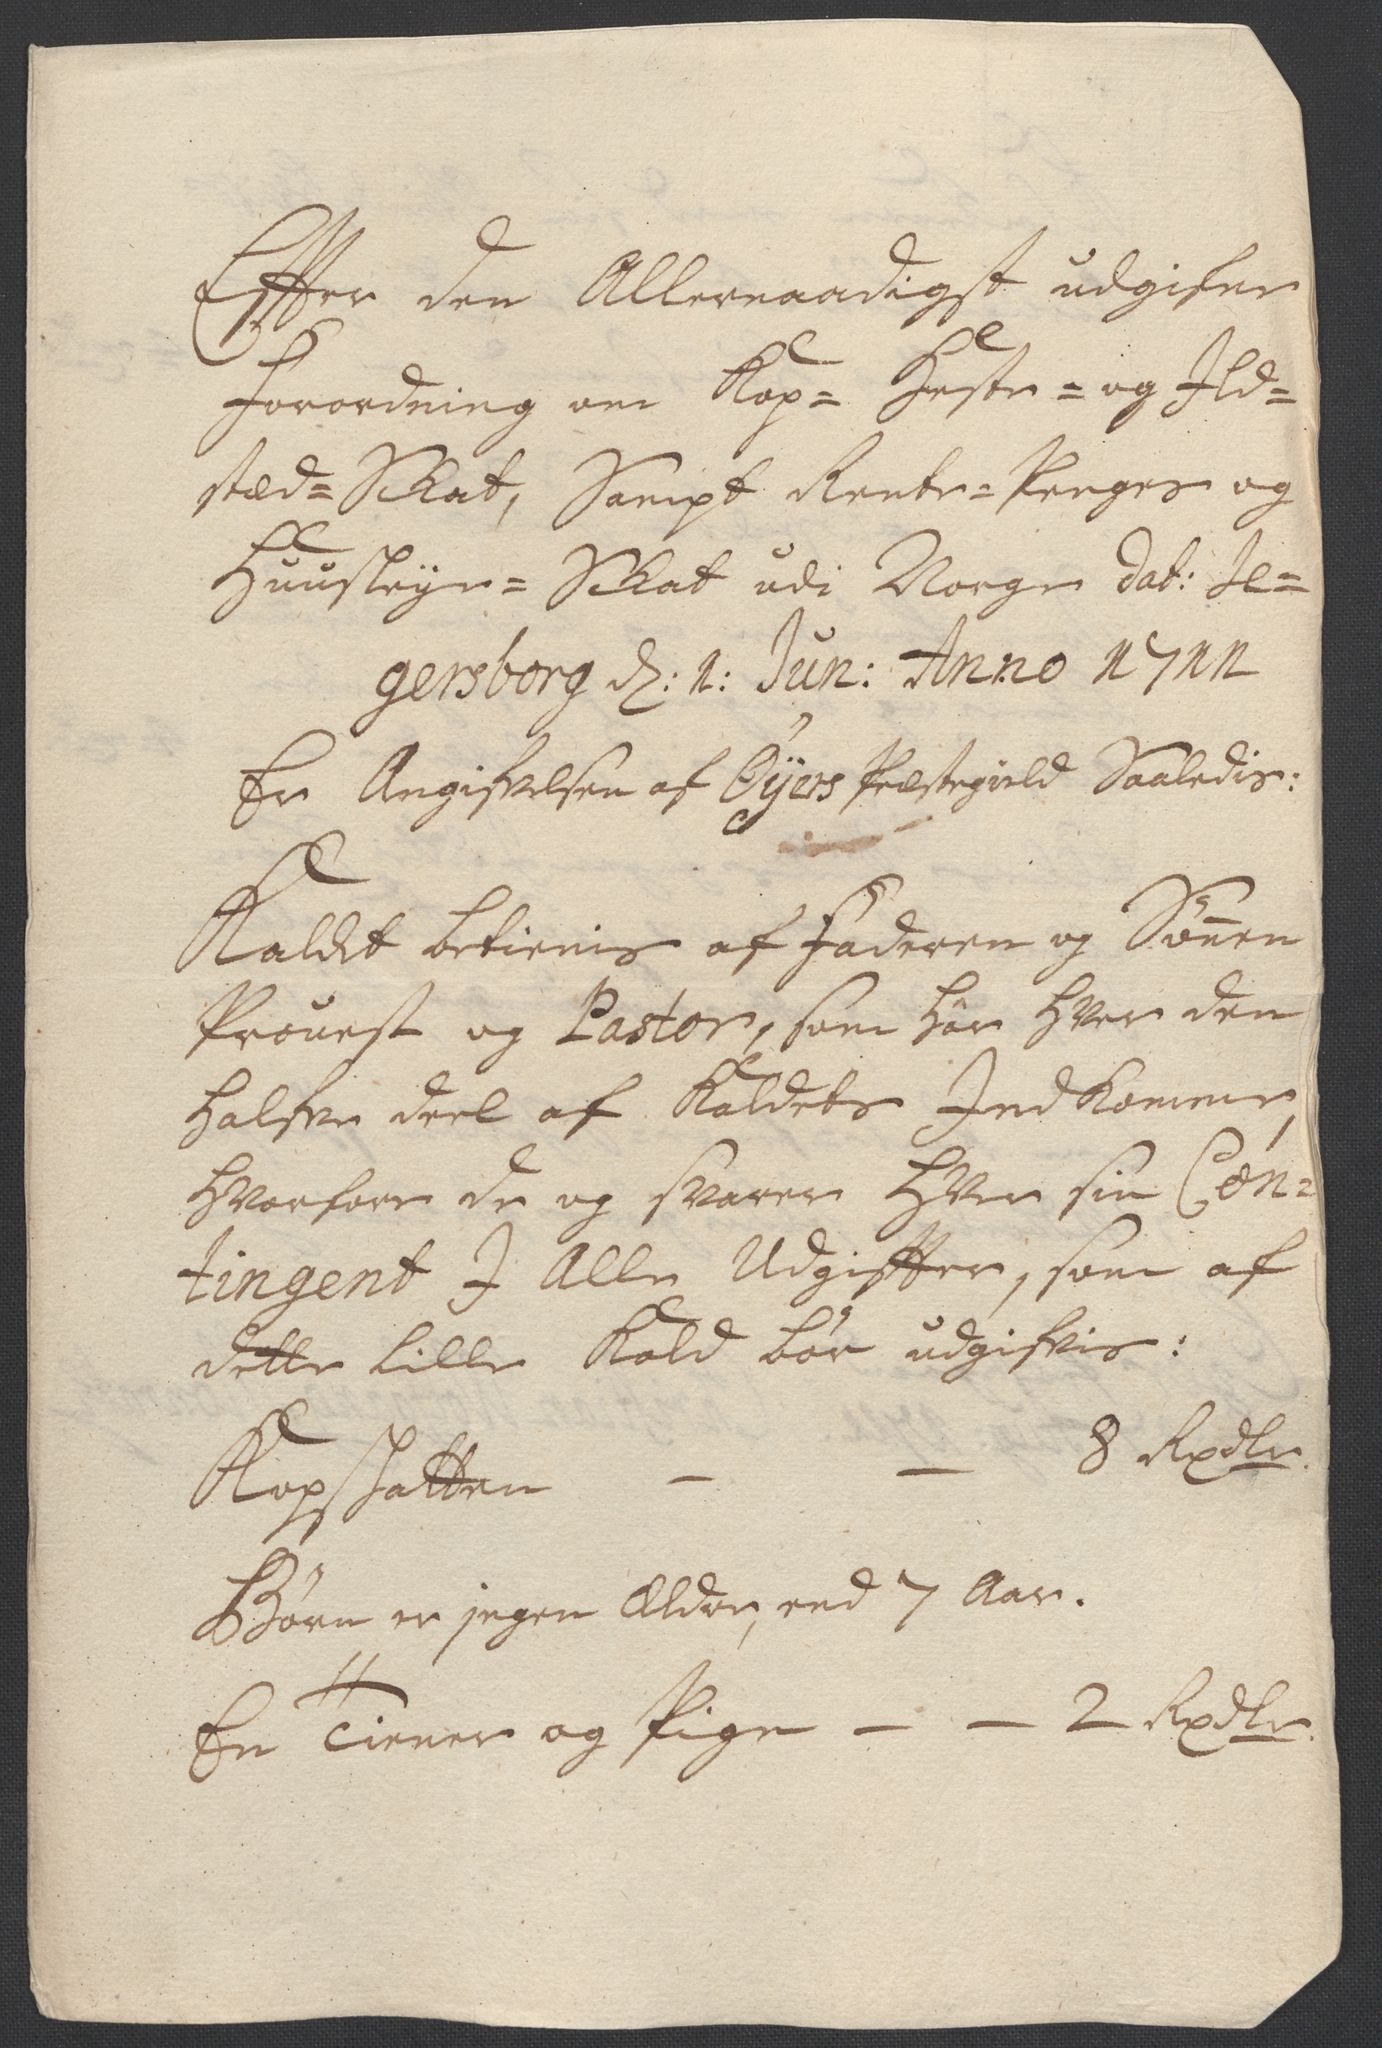 Effter den Allernaadigst udgifne
Forordning om Kop= Heste= og Ild=
stæd= Skat, Sampt Rente= Penges og
Huusleye= Skat udi Norge dat: Je=
gersborg d: 1: Jun: Anno 1711
Er Angifvelsen af Öÿers Præstegield Saaledis:
Kaldet betienis af Faderen og Sönen
Prouest og Pastor, som hör hver den
halfve deel af Kaldets Indkomme,
hvorfore de og svarer hver sin Con=
tingent I Alle Udgiffter, som af
dette lille Kald bör udgifvis:
Kopskatten — — 8 Rxdlr.
Börn er jngen Ældre, end 7 Aar.
En Tiener og Pige — — 2 Rxdlr.